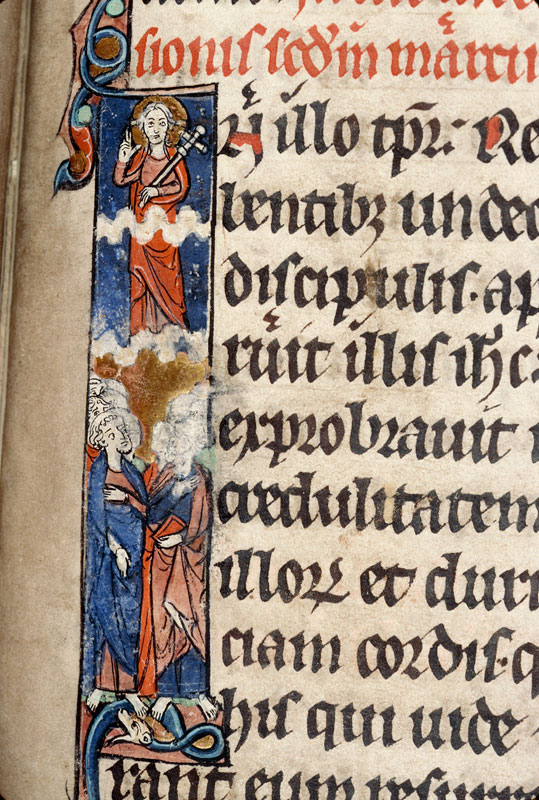 sionis scd'm marcu
In illo tp̄r: Re
bentibꝫ undec
discipulis. ap
ruit illis ih̄c
exprobrauit
credulitatem
illoꝝ et duri
ciam cordis. q
his qui uide
rant eum resurre